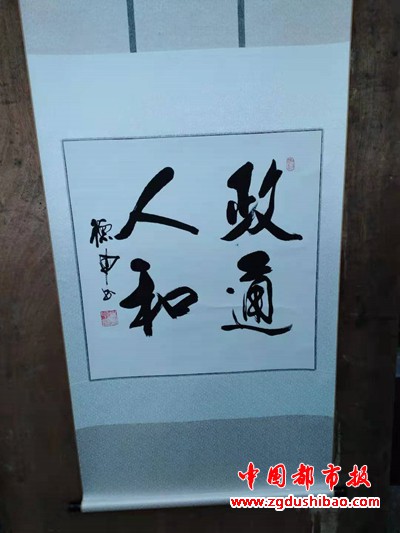 政通
人和
中国都市报
www.zgdushibao.com